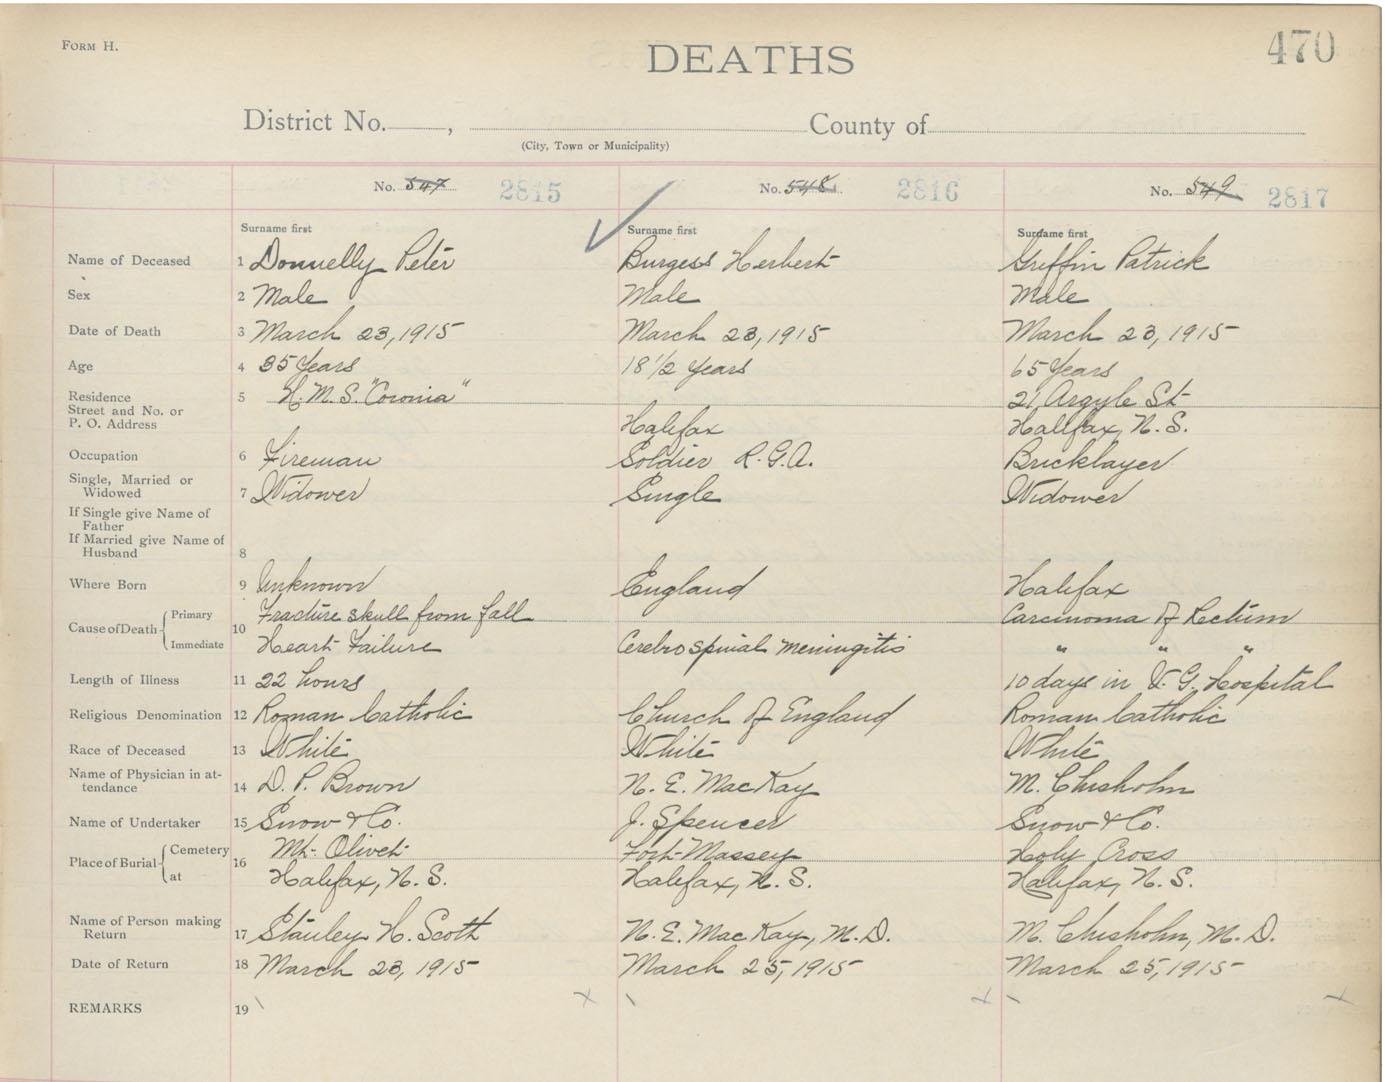 FORM H.
470
DEATHS
District No. , County of
(City, Town or Municipality)
No. 547 2815 No. 548 2816 No. 549 2817
Surname first Surname first Surname first
Name of Deceased 1 Donnelly Peter Burgess Herbert Griffin Patrick
Sex 2 Male Male Male
Date of Death 3 March 23, 1915 March 23, 1915 March 23, 1915
Age 4 35 Years 18 1/2 Years 65 Years
Residence 5 H.M.S. "Coronia" 21 Argyle St
Street and No. or
P. O. Address Halifax Halifax, N.S.
Occupation 6 Fireman Soldier R.G.A. Bricklayer
Single, Married or
Widowed 7 Widower Single Widower
If Single give Name of
Father
If Married give Name of
Husband 8
Where Born 9 Unknown England Halifax
Cause of Death Primary 10 Fracture skull from fall Carcinoma of Rectum
Immediate Heart Failure Cerebro spinial meningitis " " "
Length of Illness 11 22 hours 10 days in V.G. Hospital
Religious Denomination 12 Roman Catholic Church of England Roman Catholic
Race of Deceased 13 White White White
Name of Physician in at-
tendance 14 D. P. Brown N. E. MacKay M. Chisholm
Name of Undertaker 15 Snow & Co. J. Spencer Snow & Co.
Place of Burial Cemetery 16 Mt. Olivet Fort Massey Holy Cross
at Halifax, N.S. Halifax, N.S. Halifax, N.S.
Name of Person making
Return 17 Stanley H. Scott N. E. MacKay, M.D. M. Chisholm, M.D.
Date of Return 18 March 23, 1915 March 25, 1915 March 25, 1915
REMARKS 19